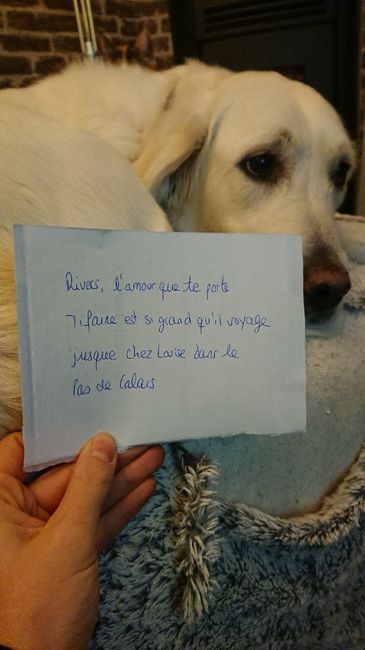 Rivers, l'amour que te porte
Tifaine est si grand qu'il voyage
jusque chez Louise dans le
Pas de Calais